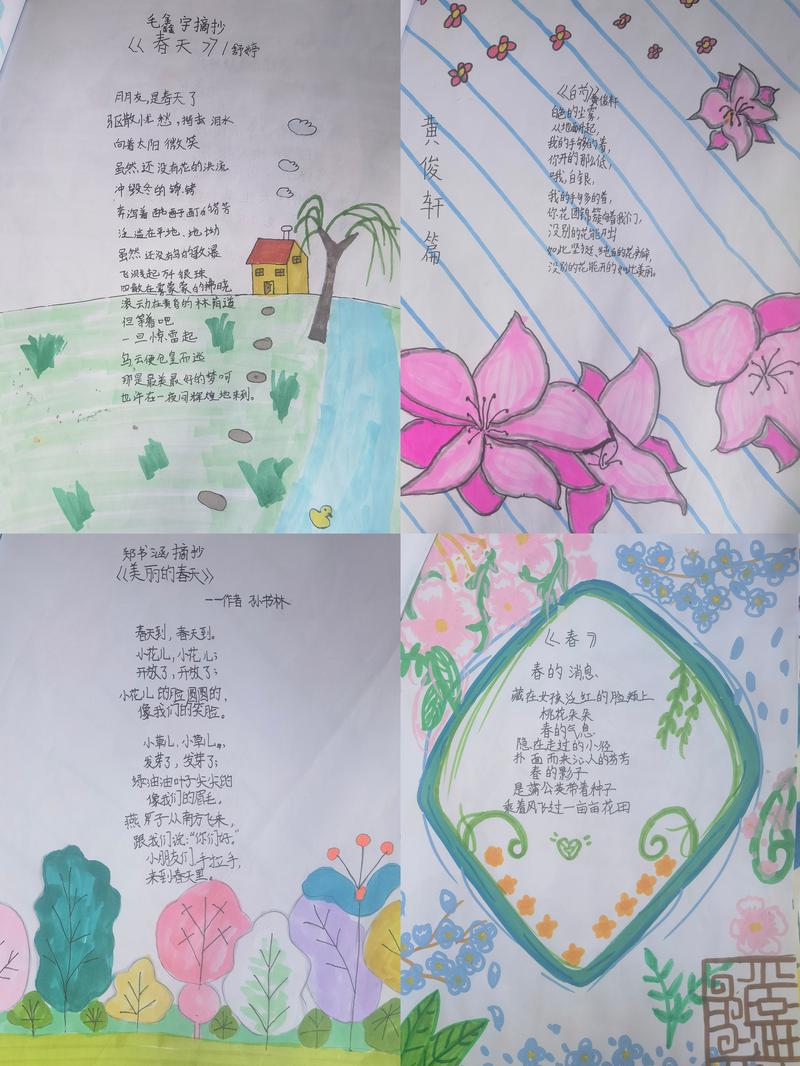 毛鑫宇摘抄
《春天》/舒婷
朋友,是春天了
驱散忧愁,揩去 泪水
向着太阳 微笑
虽然还没有花的洪流
冲毁冬的镣铐
奔泻着酩酊的芬芳
泛滥在平地、地坳
虽然还没有鸟的歌瀑
飞溅起万千银珠
四散在雾蒙蒙的拂晓
滚动在黄昏的林荫道
但等着吧
一旦惊雷起
乌云便仓皇而逃
那是最美最好的梦呵
也许在一夜间辉煌地来到。
黄俊轩篇
《白荷》黄俊轩
白色的尘雾,
从地面升起,
我的手够的着,
你开的那么低,
哦,白银,
我的手够多的着,
你花团锦簇向着我们,
没别的花能开出
如此坚挺、纯白的花
没别的花能开的如此美丽。
郑书涵摘抄
《美丽的春天》
——作者 孙书林
春天到,春天到。
小花儿,小花儿;
开放了,开放了;
小花儿的脸圆圆的,
像我们的笑脸。
小草儿,小草儿,
发芽了,发芽了;
绿油油叶子尖尖的
像我们的眉毛。
燕子从南方飞来,
跟我们说:“你们好。”
小朋友们,手拉手,
来到春天里。
《春》
春的消息、
藏在女孩泛红的脸颊上
桃花朵朵
春的气息
隐在走过的小径
扑面而来沁人的芬芳
春的影子
是蒲公英带着种子
乘着风飞过一亩亩花田